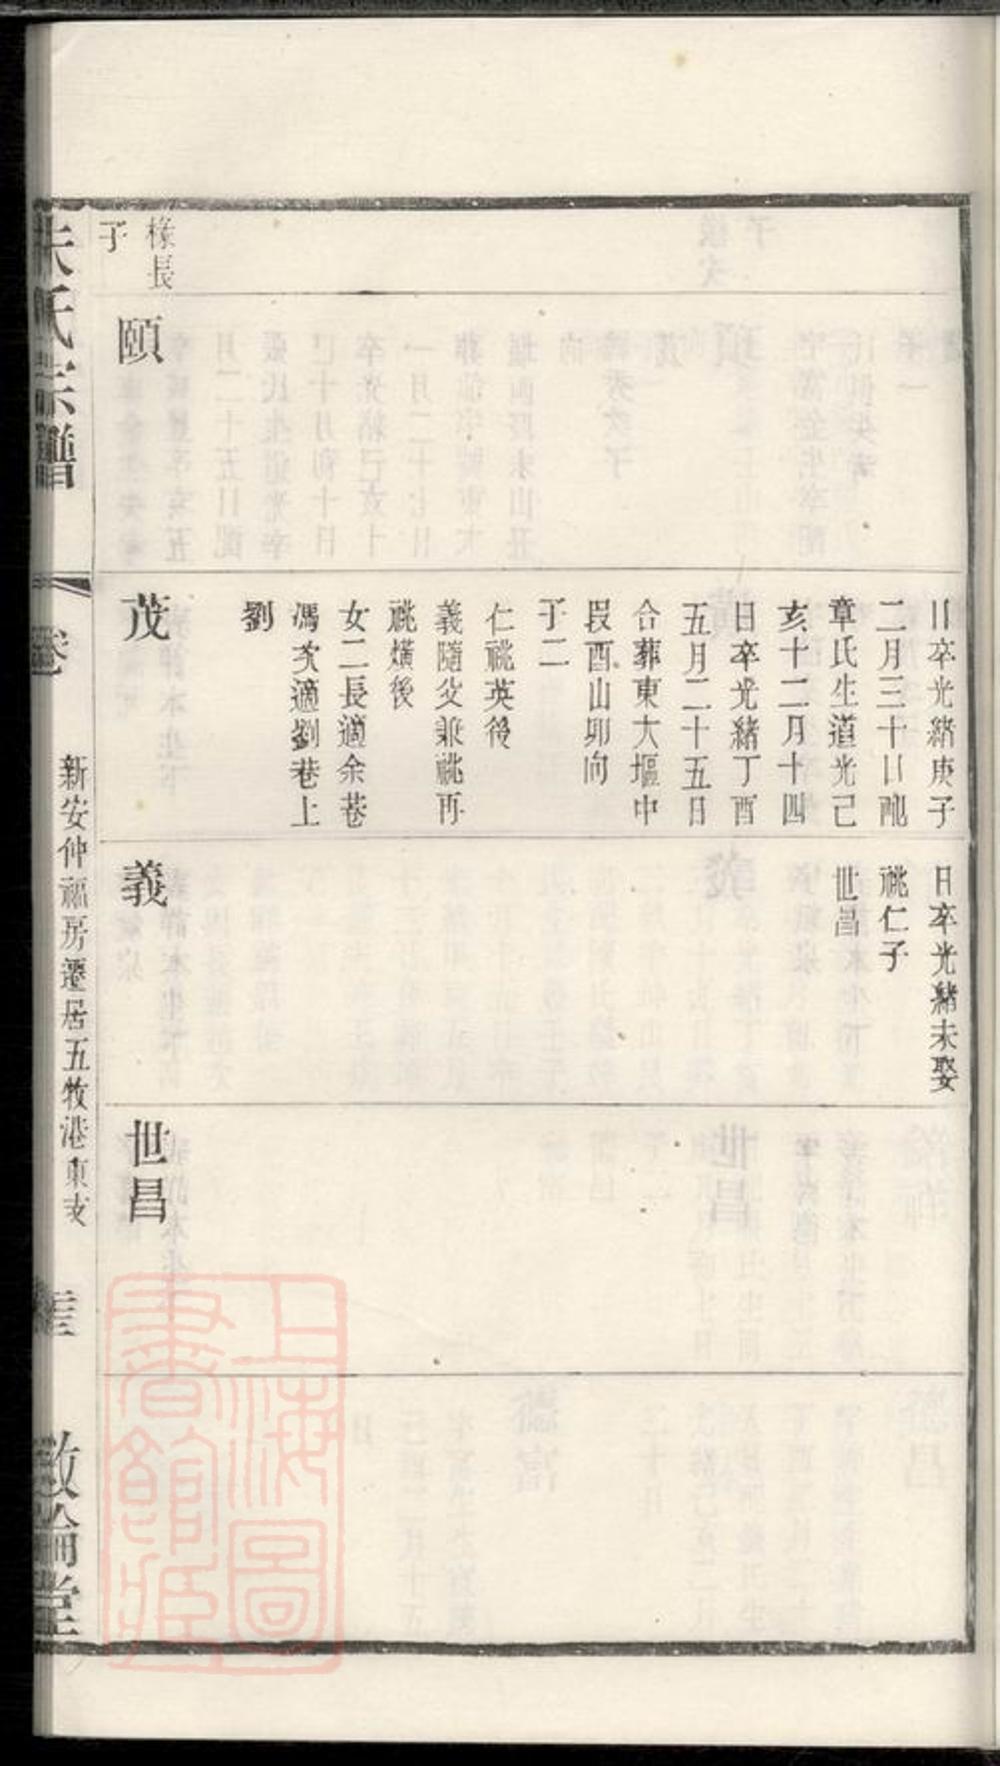 日卒光緒庚子
二月三十日配
章氏生道光己
亥十二月十四
日卒光緒丁酉
五月二十五日
合葬東大堰中
段酉山卯向
子二
仁祧英後
義隨父兼祧再
祧㷍後
女二長適余巷
馮次適劉巷上
劉
日卒光緒未娶
祧仁子
世昌
椽長
子
頤
茂
義
世昌
朱氏宗譜
卷
新安仲福房遷居五牧港東支
敦倫堂
上海圖書館藏